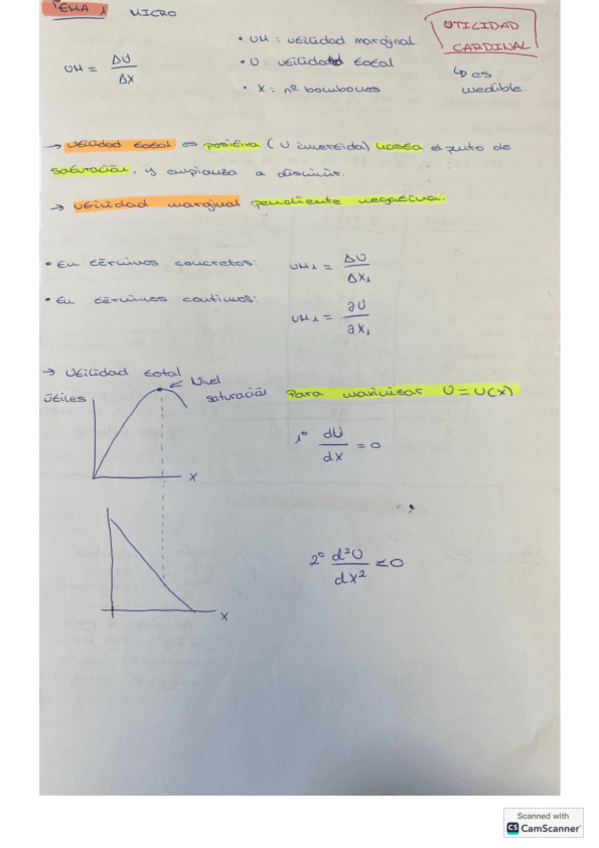 TEMA 1 MICRO
UTILIDAD
CARDINAL
↳ es
medible.
UM = ΔU / ΔX
• UM : utilidad marginal.
• U : utilidad total
• X : nº bombones
→ Utilidad total es positiva ( U invertida) hasta el punto de
saturación, y empieza a disminuir.
→ Utilidad marginal pendiente negativa.
• En términos concretos: UM₁ = ΔU / ΔX₁
• En términos continuos: UM₁ = ∂U / ∂X₁
→ Utilidad total
útiles
Nivel
saturación
X
Para maximizar U = U(X)
1º dU / dX = 0
2º d²U / dX² < 0
X
Scanned with
CS CamScanner